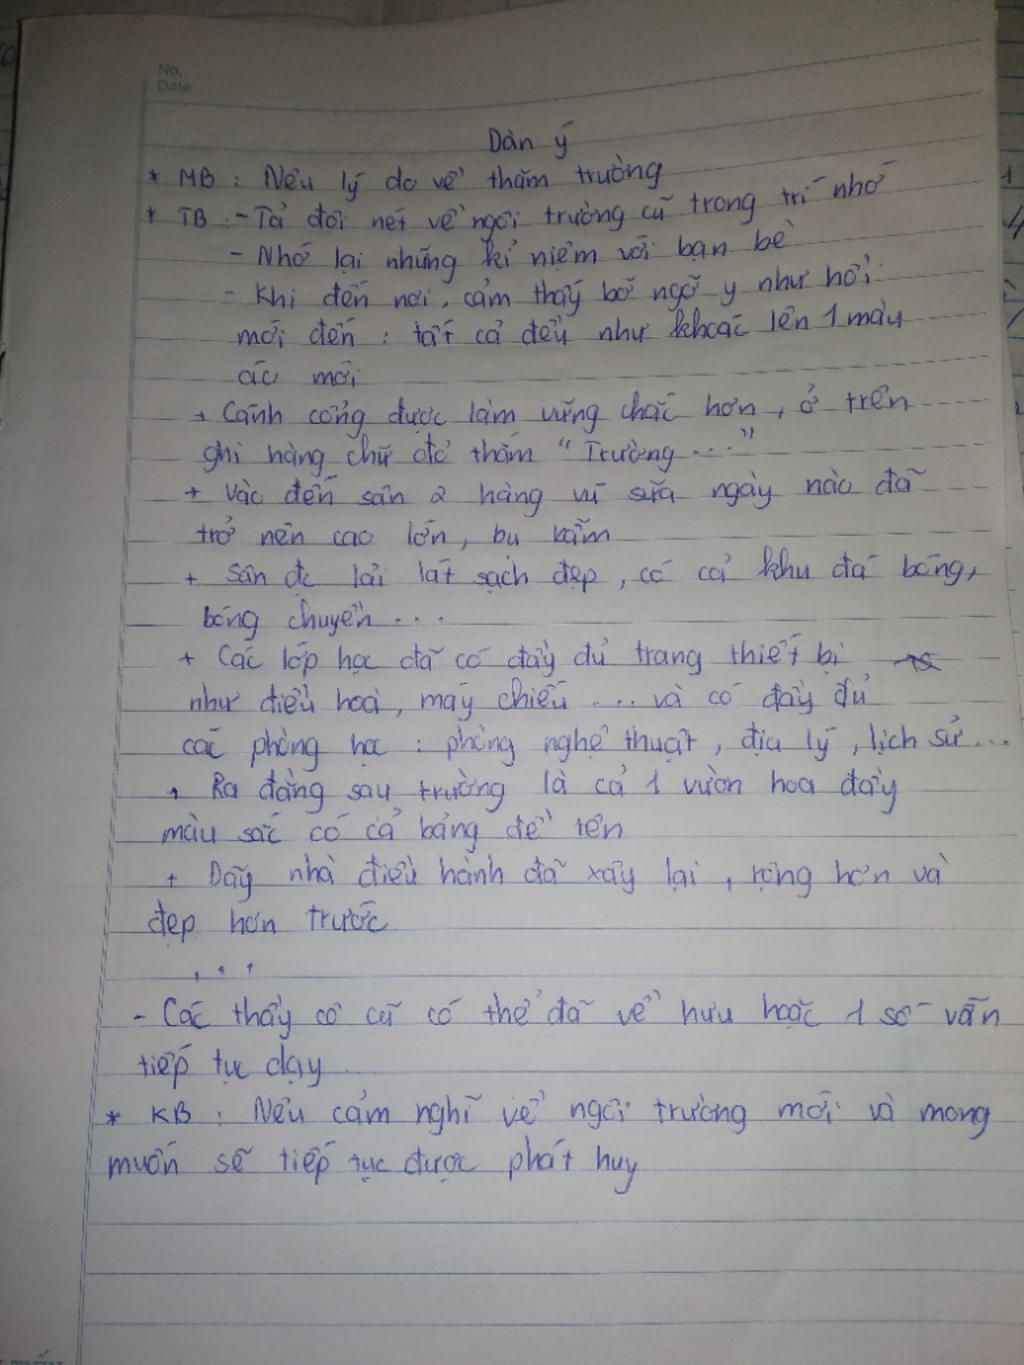 No.
Date
Dàn ý
* MB : Nêu lý do về thăm trường
* TB : - Tả đôi nét về ngôi trường cũ trong trí nhớ
- Nhớ lại những kỉ niệm với bạn bè
- Khi đến nơi, cảm thấy bỡ ngỡ y như hồi
mới đến : tất cả đều như khoác lên 1 màu
áo mới
+ Cánh cổng được làm vững chắc hơn, ở trên
ghi hàng chữ đỏ thắm "Trường ..."
+ Vào đến sân 2 hàng vú sữa ngày nào đã
trở nên cao lớn, bụ bẫm
+ Sân đc lải lát sạch đẹp, có cả khu đá bóng,
bóng chuyền ...
+ Các lớp học đã có đầy đủ trang thiết bị
như điều hoà, máy chiếu ... và có đầy đủ
các phòng học : phòng nghệ thuật, địa lý, lịch sử ...
+ Ra đằng sau trường là cả 1 vườn hoa đầy
màu sắc có cả bảng đề tên
+ Dãy nhà điều hành đã xây lại, rộng hơn và
đẹp hơn trước
...
- Các thầy cô cũ có thể đã về hưu hoặc 1 số vẫn
tiếp tục dạy
* KB : Nêu cảm nghĩ về ngôi trường mới và mong
muốn sẽ tiếp tục được phát huy